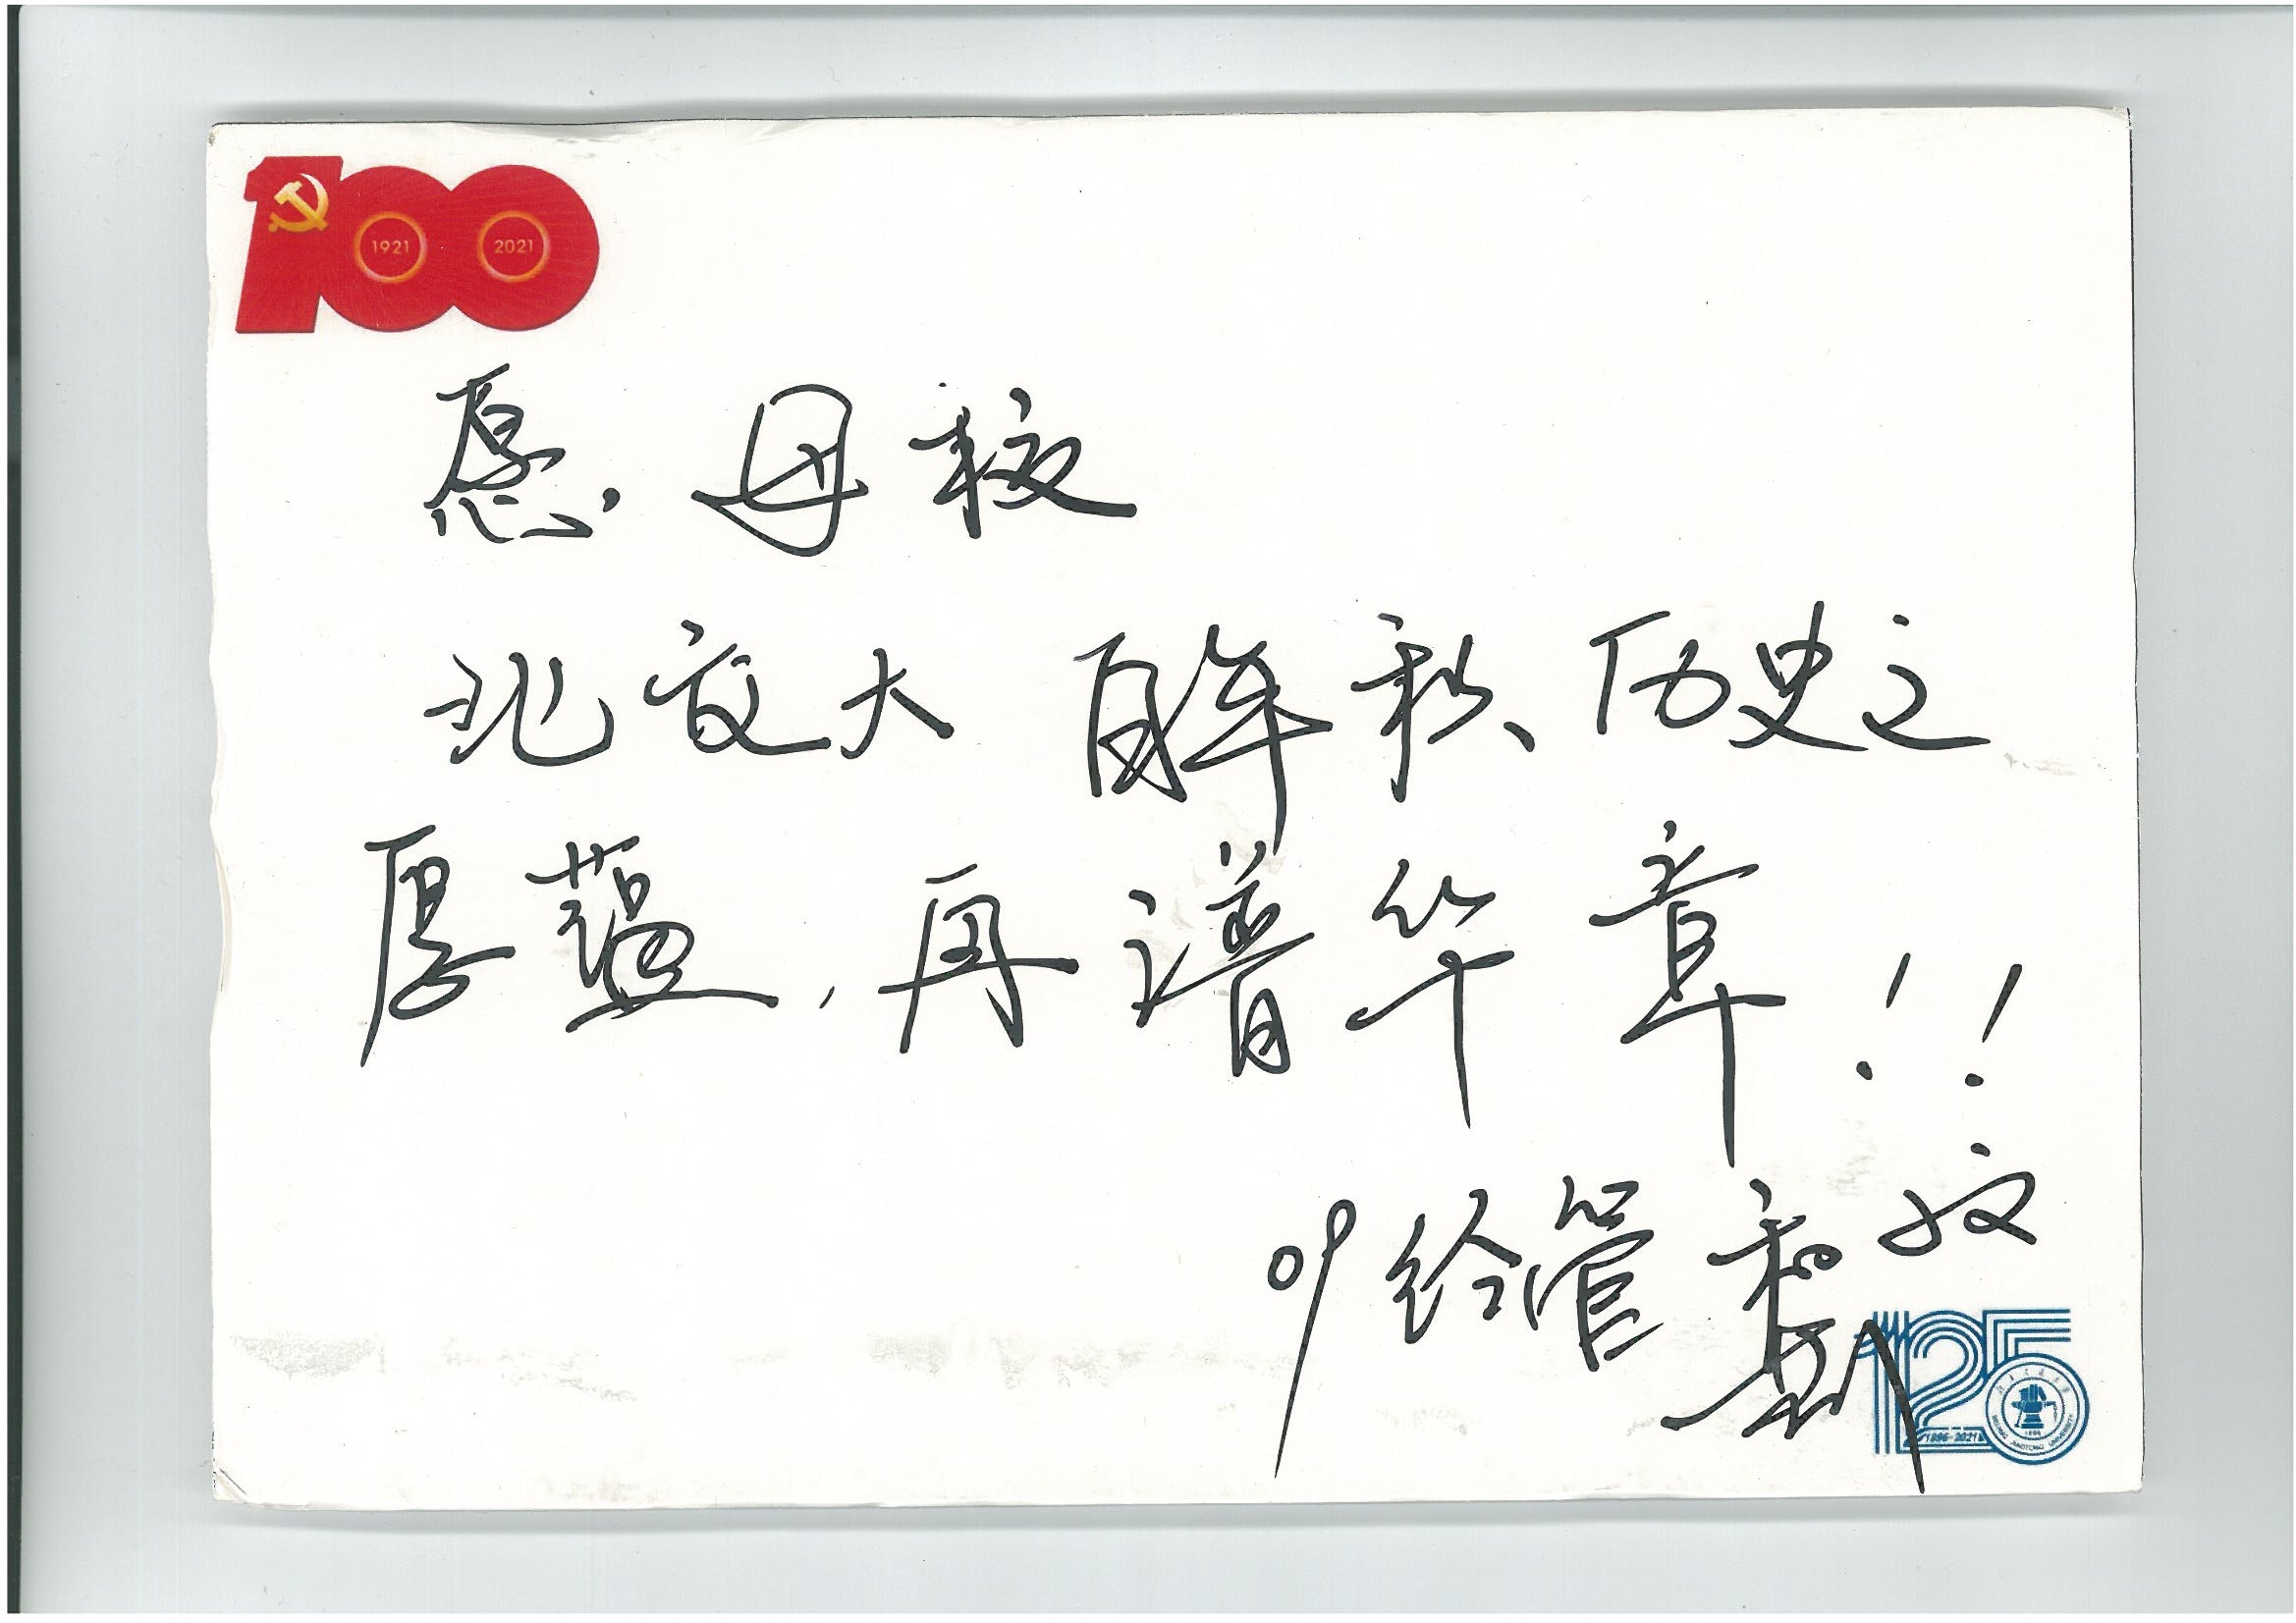 100
1921 2021
愿,母校
北交大 百年积、历史之
厚蕴,再谱华章!!
09经管
125
1896-2021
BEIJING JIAOTONG UNIVERSITY
1896